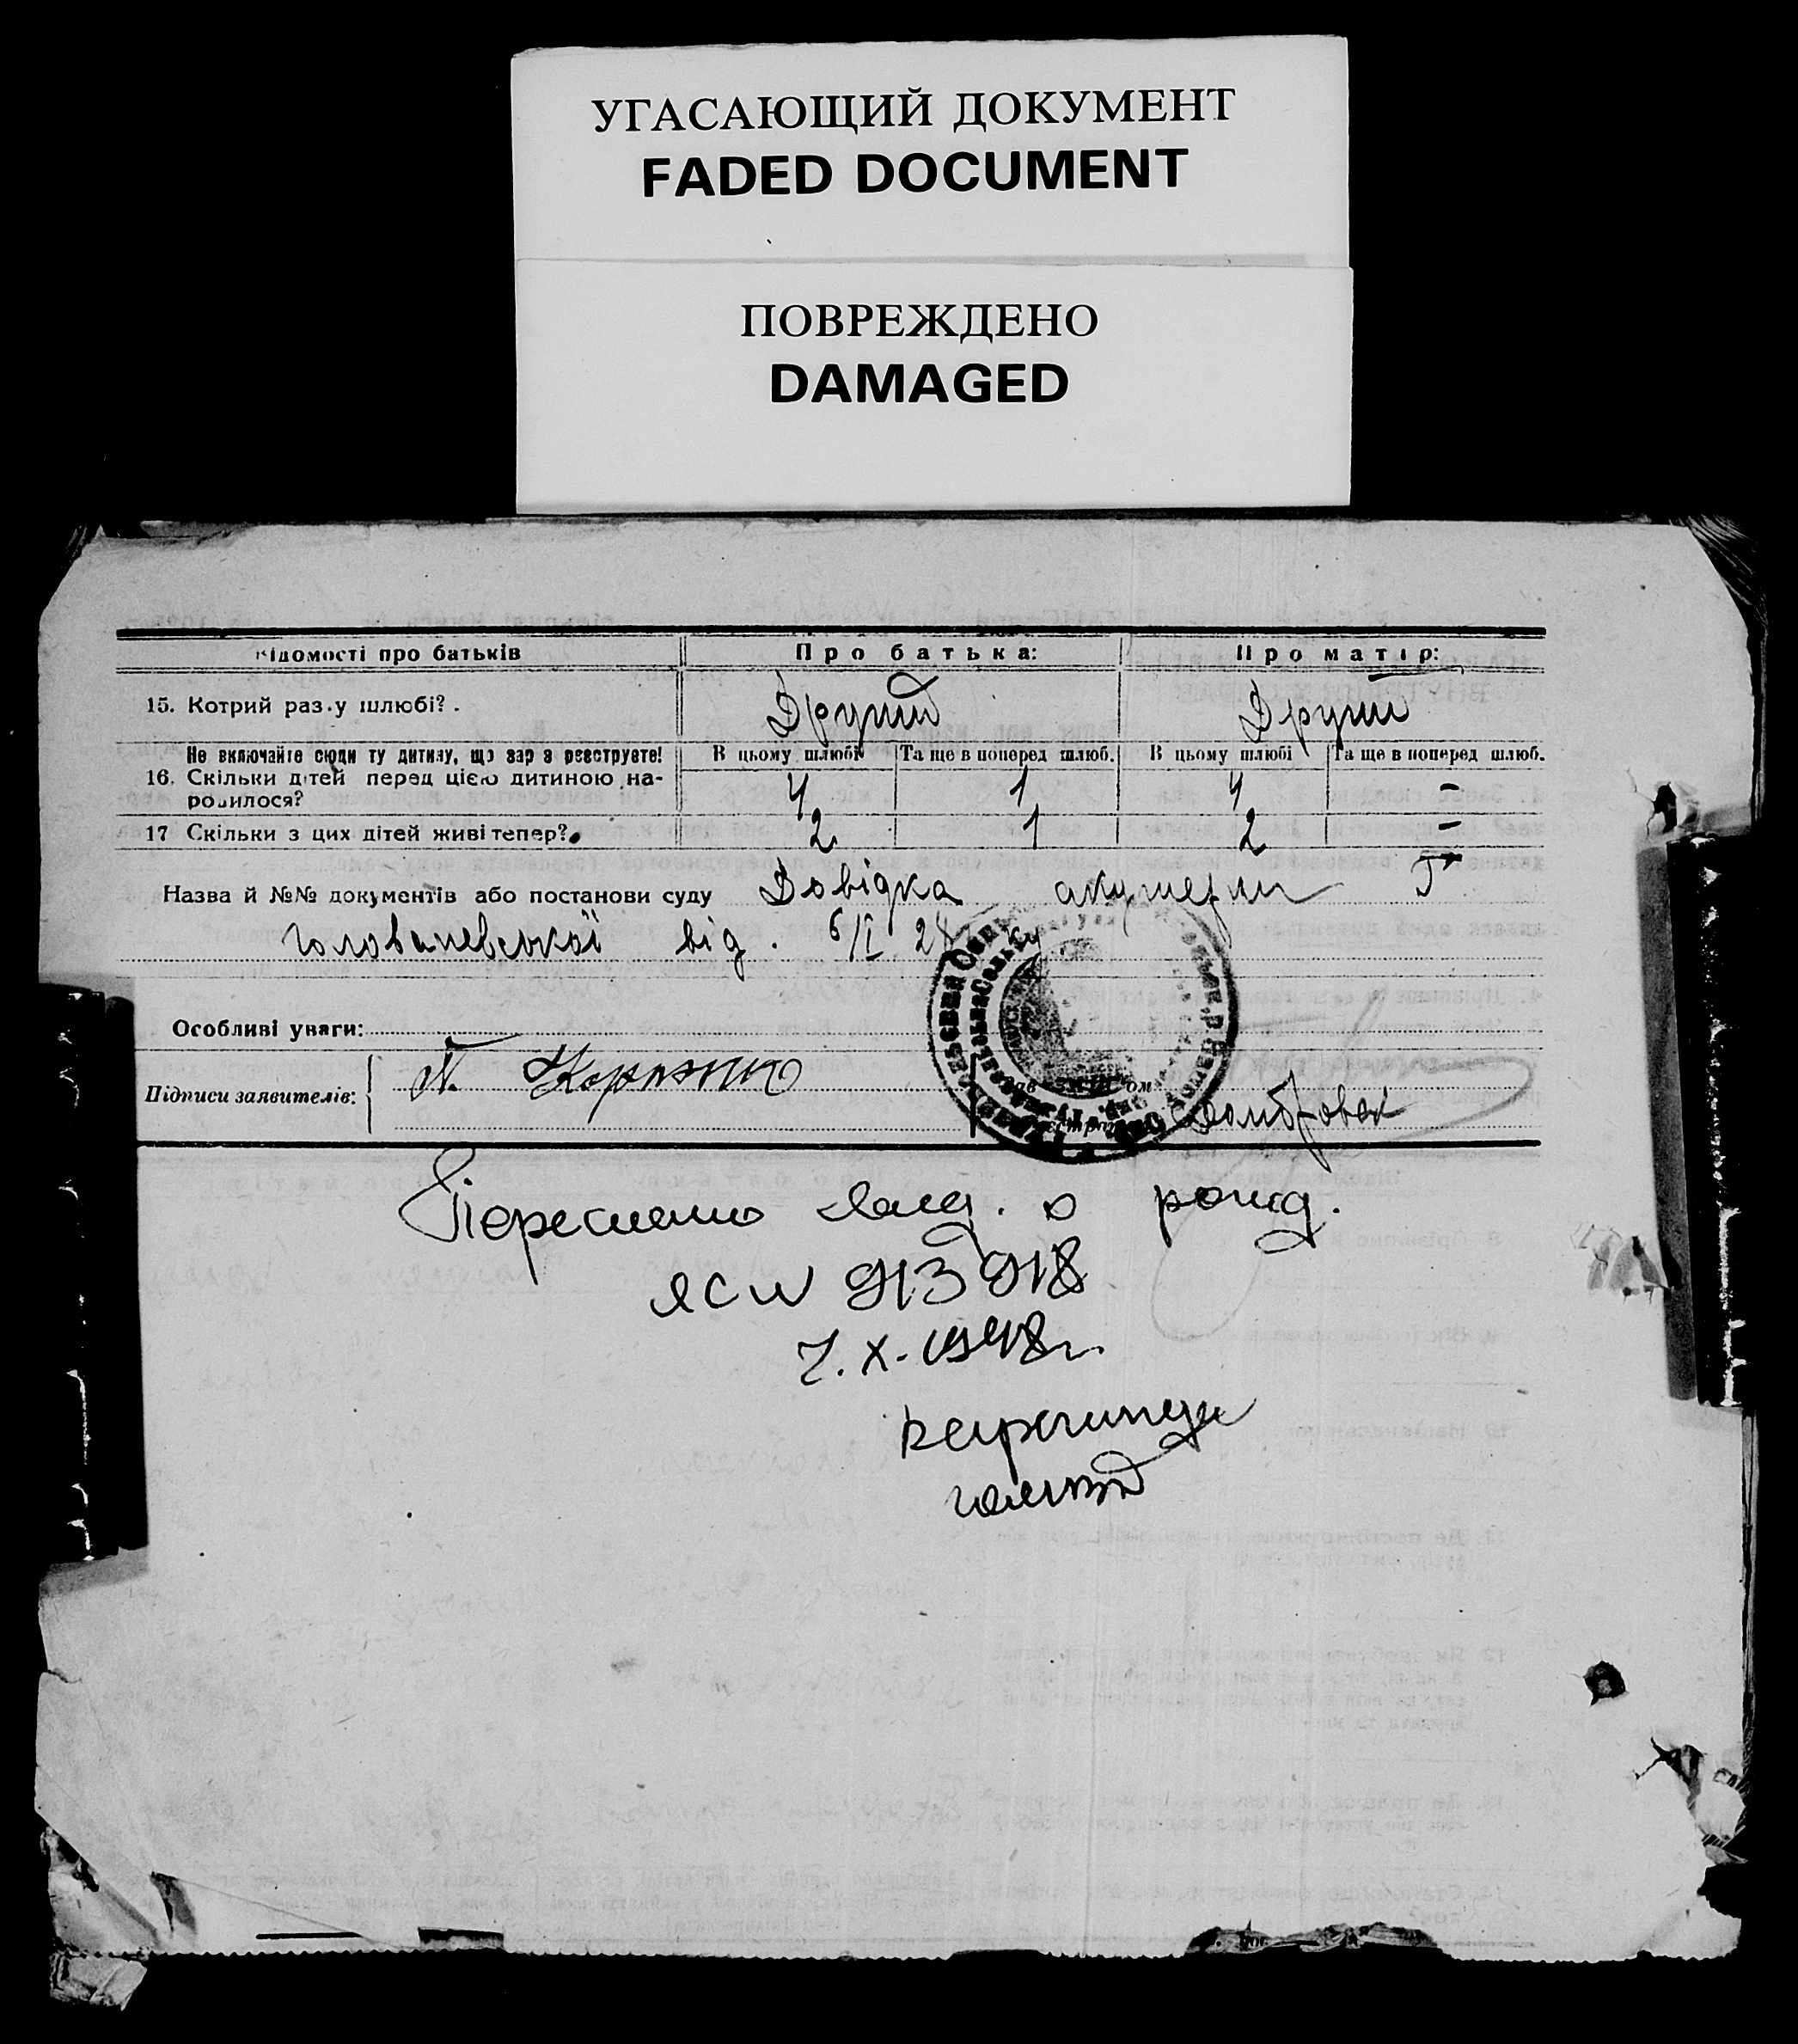 УГАСАЮЩИЙ ДОКУМЕНТ
FADED DOCUMENT
ПОВРЕЖДЕНО
DAMAGED
відомості про батьків Про батька: Про матір:
15. Котрий раз у шлюбі? Другий Другий
Не включайте сюди ту дитину, що зар з реєструєте! В цьому шлюбі Та ще в поперед шлюб. В цьому шлюбі Та ще в поперед шлюб.
16. Скільки дітей перед цією дитиною на-
родилося? 4 1 4 -
17 Скільки з цих дітей живі тепер? 2 1 2 -
Назва й №№ документів або постанови суду Довідка акушерки
Голованевської від 6/I 28
Особливі уваги:
Підписи заявителів:
о рожд.
ЯС № 913918
7.X-1948г.